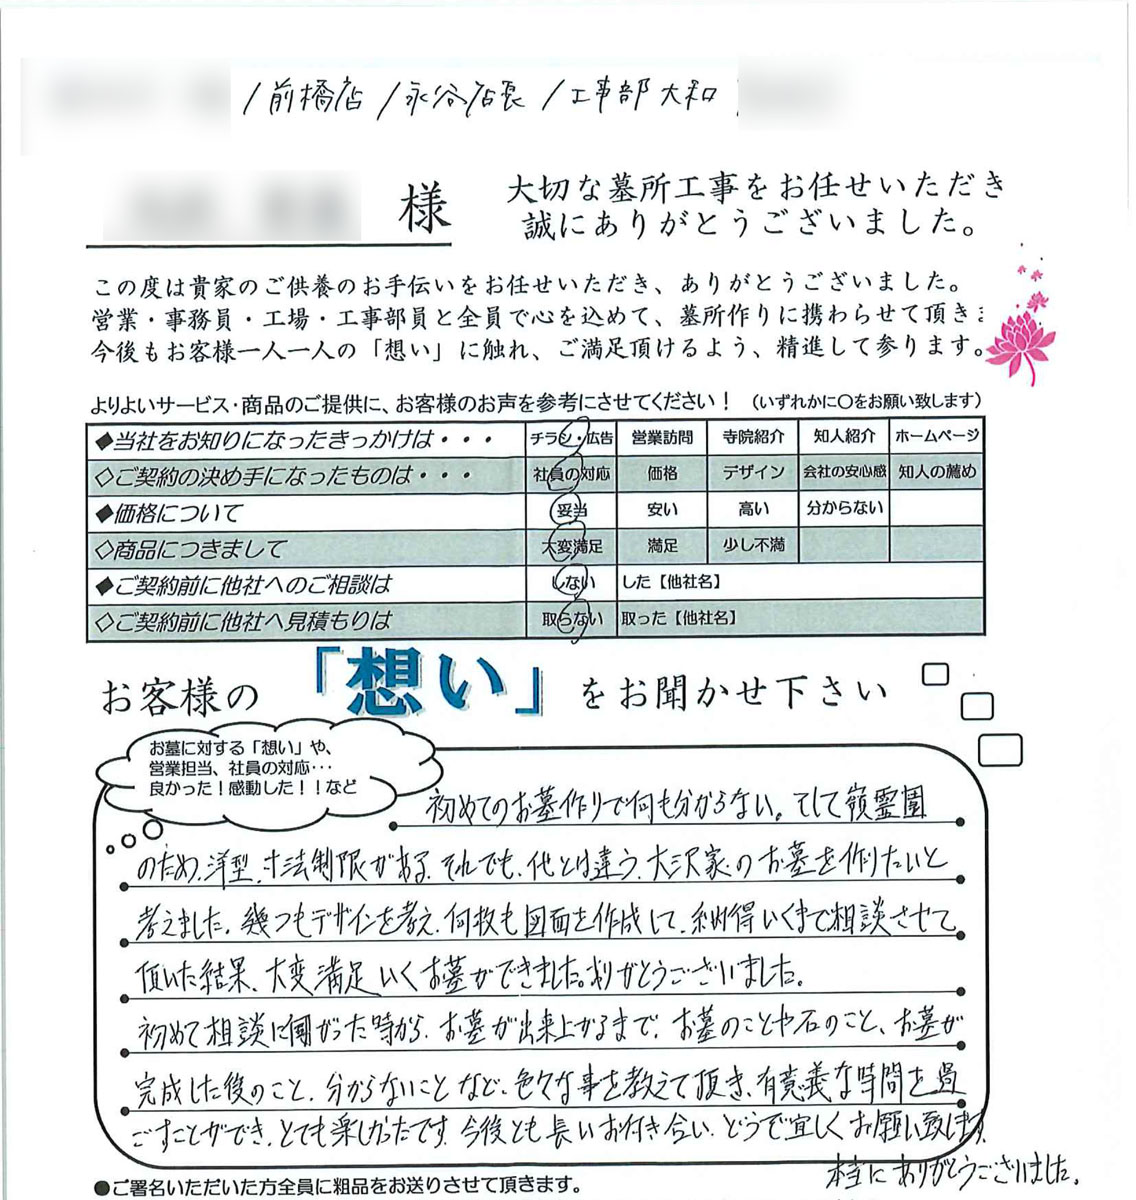 /前橋店 /永谷店長 /工事部 大和
様
大切な墓所工事をお任せいただき
誠にありがとうございました。
この度は貴家のご供養のお手伝いをお任せいただき、ありがとうございました。
営業・事務員・工場・工事部員と全員で心を込めて、墓所作りに携わらせて頂きま
今後もお客様一人一人の「想い」に触れ、ご満足頂けるよう、精進して参ります。
よりよいサービス・商品のご提供に、お客様のお声を参考にさせてください！ （いずれかに○をお願い致します）
◆当社をお知りになったきっかけは・・・ チラシ・広告 営業訪問 寺院紹介 知人紹介 ホームページ
◇ご契約の決め手になったものは・・・ 社員の対応 価格 デザイン 会社の安心感 知人の薦め
◆価格について 妥当 安い 高い 分からない
◇商品につきまして 大変満足 満足 少し不満
◆ご契約前に他社へのご相談は しない した【他社名】
◇ご契約前に他社へ見積もりは 取らない 取った【他社名】
お客様の「想い」をお聞かせ下さい
お墓に対する「想い」や、
営業担当、社員の対応･･･
良かった！感動した！！など
初めてのお墓作りで何も分からない。そして嶺霊園
のため、洋型、寸法制限がある。それでも、他とは違う、大沢家のお墓を作りたいと
考えました。幾つもデザインを考え、何枚も図面を作成して、納得いくまで相談させて
頂いた結果、大変満足いくお墓ができました。ありがとうございました。
初めて相談に伺がった時から、お墓が出来上がるまで、お墓のことや石のこと、お墓が
完成した後のこと、分からないことなど、色々な事を教えて頂き、有意義な時間を過
ごすことができ、とても楽しかったです。今後とも長いお付き合い、どうぞ宜しくお願い致します。
本当にありがとうございました。
●ご署名いただいた方全員に粗品をお送りさせて頂きます。